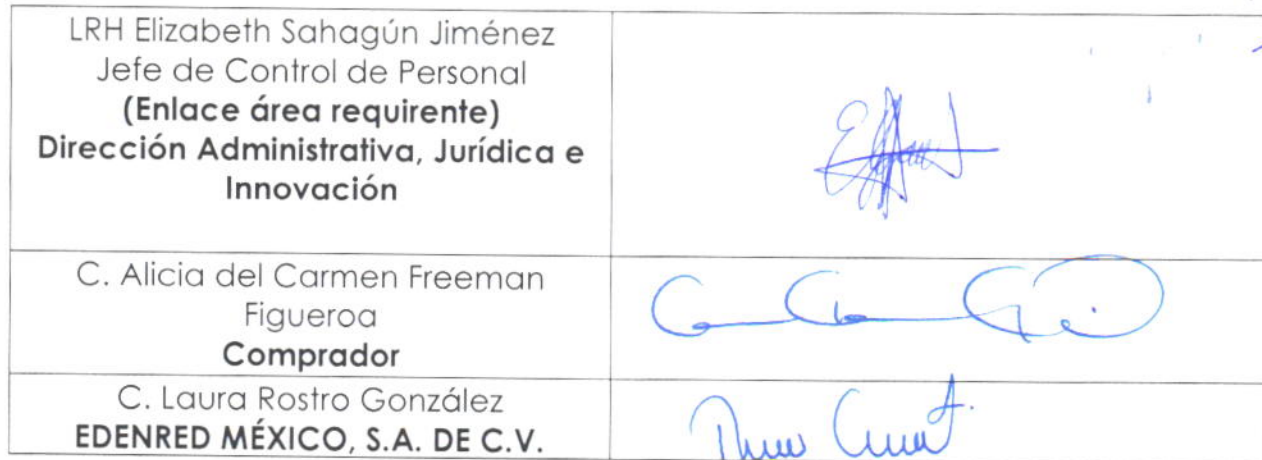 LRH Elizabeth Sahagún Jiménez
Jefe de Control de Personal
(Enlace área requirente)
Dirección Administrativa, Jurídica e
Innovación
C. Alicia del Carmen Freeman
Figueroa
Comprador
C. Laura Rostro González
EDENRED MÉXICO, S.A. DE C.V.